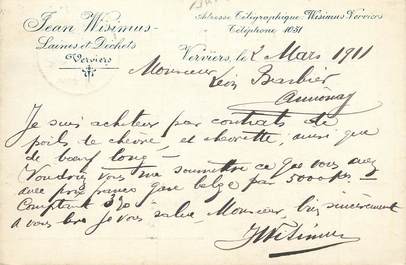 Jean Wisimus
Laines et Déchets
Verviers
Adresse Télégraphique: Wisimus Verviers
Téléphone 1051
Verviers, le 2 Mars 1911
Monsieur
Léon Barbier
Annonay
Je suis acheteur par contrats de
poils de chèvre, et chevrette, ainsi que
de bœuf long
Voudriez vous me soumettre ce que vous avez
avec prix franco gare belge par 5000 Kos
Comptant 3%
à vous lire je vous salue Monsieur, bien sincèrement
JWisimus